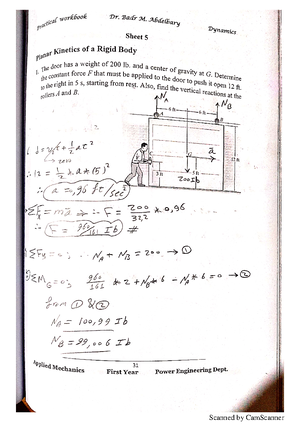 Practical workbook
Dr. Badr M. Abdelbary
Dynamics
Sheet 5
Planar Kinetics of a Rigid Body
1. The door has a weight of 200 lb. and a center of gravity at G. Determine
the constant force F that must be applied to the door to push it open 12 ft.
to the right in 5 s, starting from rest. Also, find the vertical reactions at the
rollers A and B.
N_A
N_B
6 ft
6 ft
a
200 Ib
12 ft
3 ft
t + 1/2 at²
zero
∴ 12 = 1/2 * a * (5)²
∴ a = ,96 ft/sec²
ΣF = ma ∴ F = 200/32,2 * 0,96
∴ F = 960/161 Ib #
ΣF_y = 0 ; N_A + N_B = 200 → ①
ΣM_G = 0 ; 960/161 * 2 + N_B * 6 - N_A * 6 = 0 → ②
from ① & ②
N_A = 100,99 Ib
N_B = 99,006 Ib
31
Applied Mechanics
First Year
Power Engineering Dept.
Scanned by CamScanner